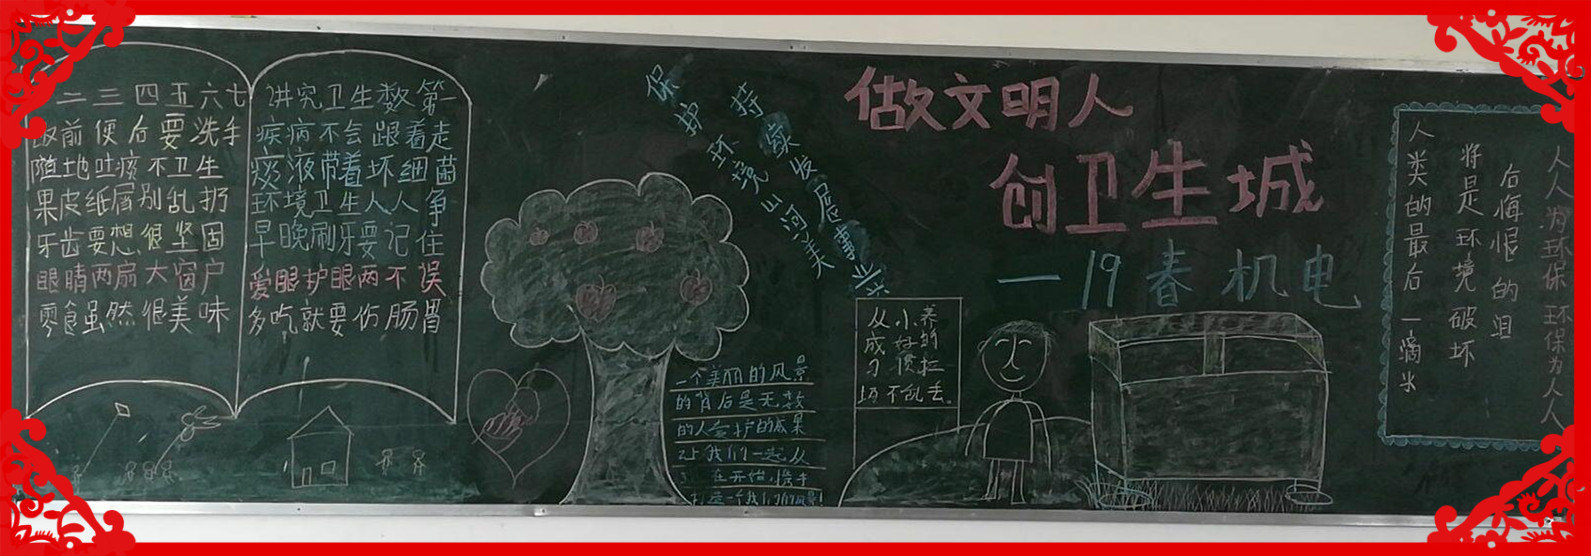 二三四五六七
饭前便后要洗手
随地吐痰不卫生
果皮纸屑别乱扔
牙齿要想很坚固
眼睛两扇大窗户
零食虽然很美味
讲究卫生数第一
疾病不会跟着走
痰液带着坏细菌
环境卫生人人争
早晚刷牙要记住
爱眼护眼两不误
多吃就要伤肠胃
保护环境山河美
持续发展事业兴
一个美丽的风景
的背后是无数
的人爱护的成果
让我们一起从
在开始,携手
打造一个我们的风景!
做文明人
创卫生城
—19春机电
从小养
成好的
习惯垃
圾不乱丢。
人类的最后一滴水
将是环境破坏
后悔恨的泪
人人为环保 环保为人人